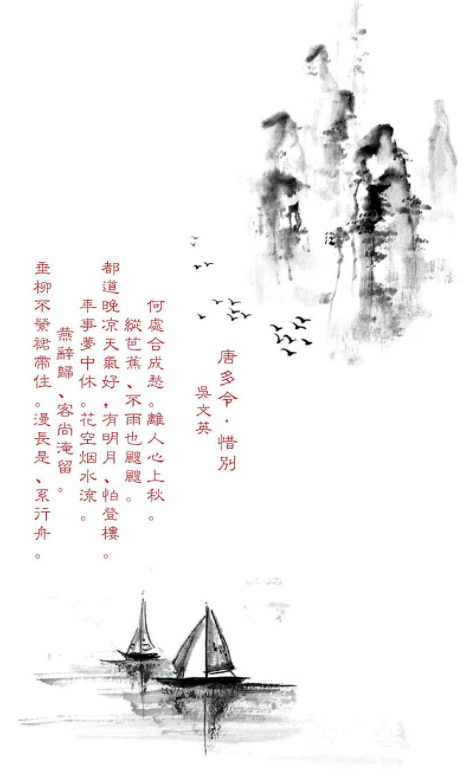 唐多令·惜別
吳文英
何處合成愁。離人心上秋。
縱芭蕉、不雨也颼颼。
都道晚凉天氣好，有明月、怕登樓。
年事夢中休。花空烟水流。
燕辭歸、客尚淹留。
垂柳不縈裙帶住。漫長是、系行舟。